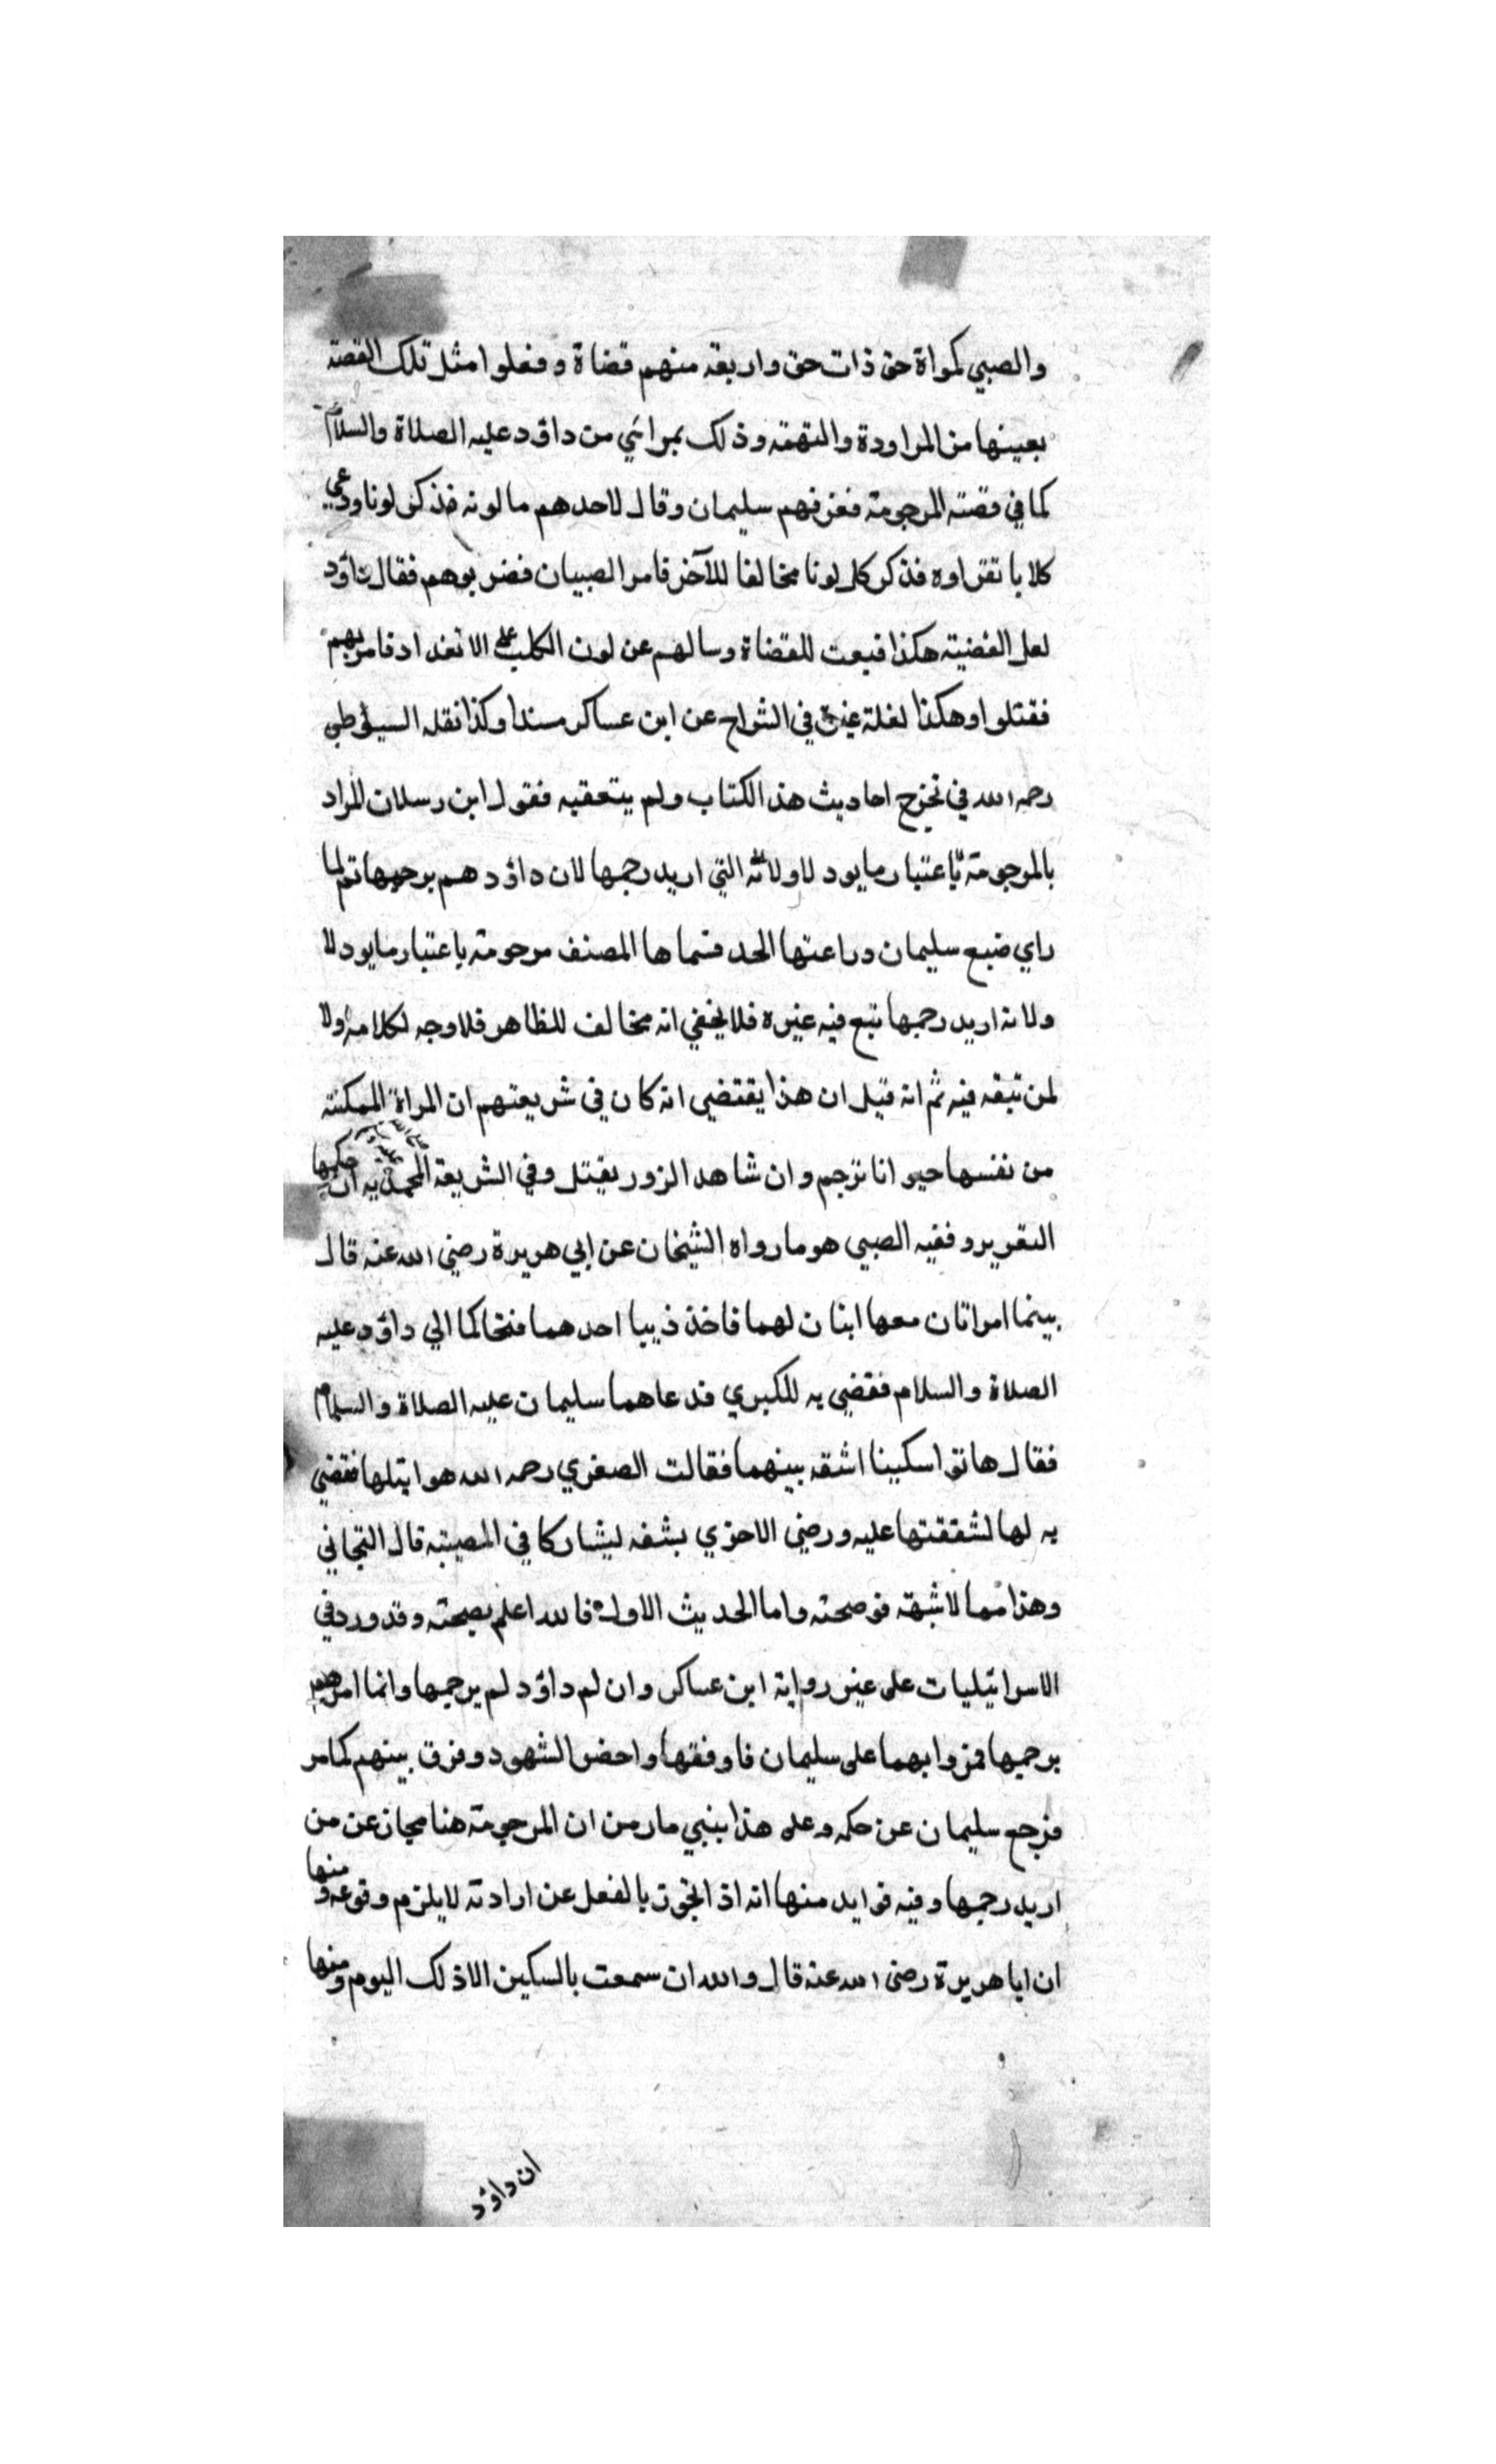 والصبي كمراة حق ذات حق واربعة منهم قضاة وفعلوا مثل تلك القصة
بعينها من المراودة والتهمة وذلك بمرائي من داؤد عليه الصلاة والسلام
كما في قصته المرجومة ففرقهم سليمان وقال لاحدهم ما لونه فذكر لونا ودعي
كلا باتقراوه فذكر كل لونا مخالفا للآخر فامر الصبيان فضربوهم فقال داؤد
لعل القضية هكذا فبعث للقضاة وسالهم عن لون الكلب على الانفراد فامر بهم
فقتلوا وهكذا نقلة غيره في الشراح عن ابن عساكر مسندا وكذا نقله السيوطي
رحمه الله في تخرج احاديث هذا الكتاب ولم يتعقبه فقول ابن رسلان المراد
بالمرجومة باعتبار مايود لاولانه التي اريد رجمها لان داؤد هم برجمها ثم لما
راي صنيع سليمان وراعتها الحد فسماها المصنف مرجومة باعتبار مايود لا
ولانه اريد رجمها تبع فيه غيره فلا يخفي انه مخالف للظاهر فلا وجه لكلامه ولا
لمن تبعه فيه ثم انه قيل ان هذا يقتضي انه كان في شريعتهم ان المراة الممكنة
من نفسها حيوانا ترجم وان شاهد الزور يقتل وفي الشريعة المحمدية ان حكمها
التعزير وقفيه الصبي هو ما رواه الشيخان عن ابي هريرة رضي الله عنه قال
بينما امراتان معها ابنان لهما فاخذ ذيبا احدهما فتحاكما الي داؤد عليه
الصلاة والسلام فقضي به للكبري فدعاهما سليمان عليه الصلاة والسلام
فقال هاتوا سكينا اشقه بينهما فقالت الصغري رحمه الله هو ابنلها فقضي
به لها لشفقتها عليه ورضي الاخري بشقه ليشاركا في المصيبة قال التجاني
وهذا مما لا شبهة في صحته واما الحديث الاول فالله اعلم بصحته وقد ورد في
الاسرائيليات على غير رواية ابن عساكر وان لم داؤد لم يرجمها وانما امرهم
برجمها فمروا بهما على سليمان فاوقفها واحضر الشهود وفرق بينهم كما مر
فرجع سليمان عن حكمه وعلى هذا ينبي مارمن ان المرجومة هنا مجاز عن من
اريد رجمها وفيه فوايد منها انه اذ التجوز بالفعل عن ارادته لا يلزم وقوعه ومنها
ان ابا هريرة رضي الله عنه قال والله ان سمعت بالسكين الا ذلك اليوم ومنها
ان داؤد